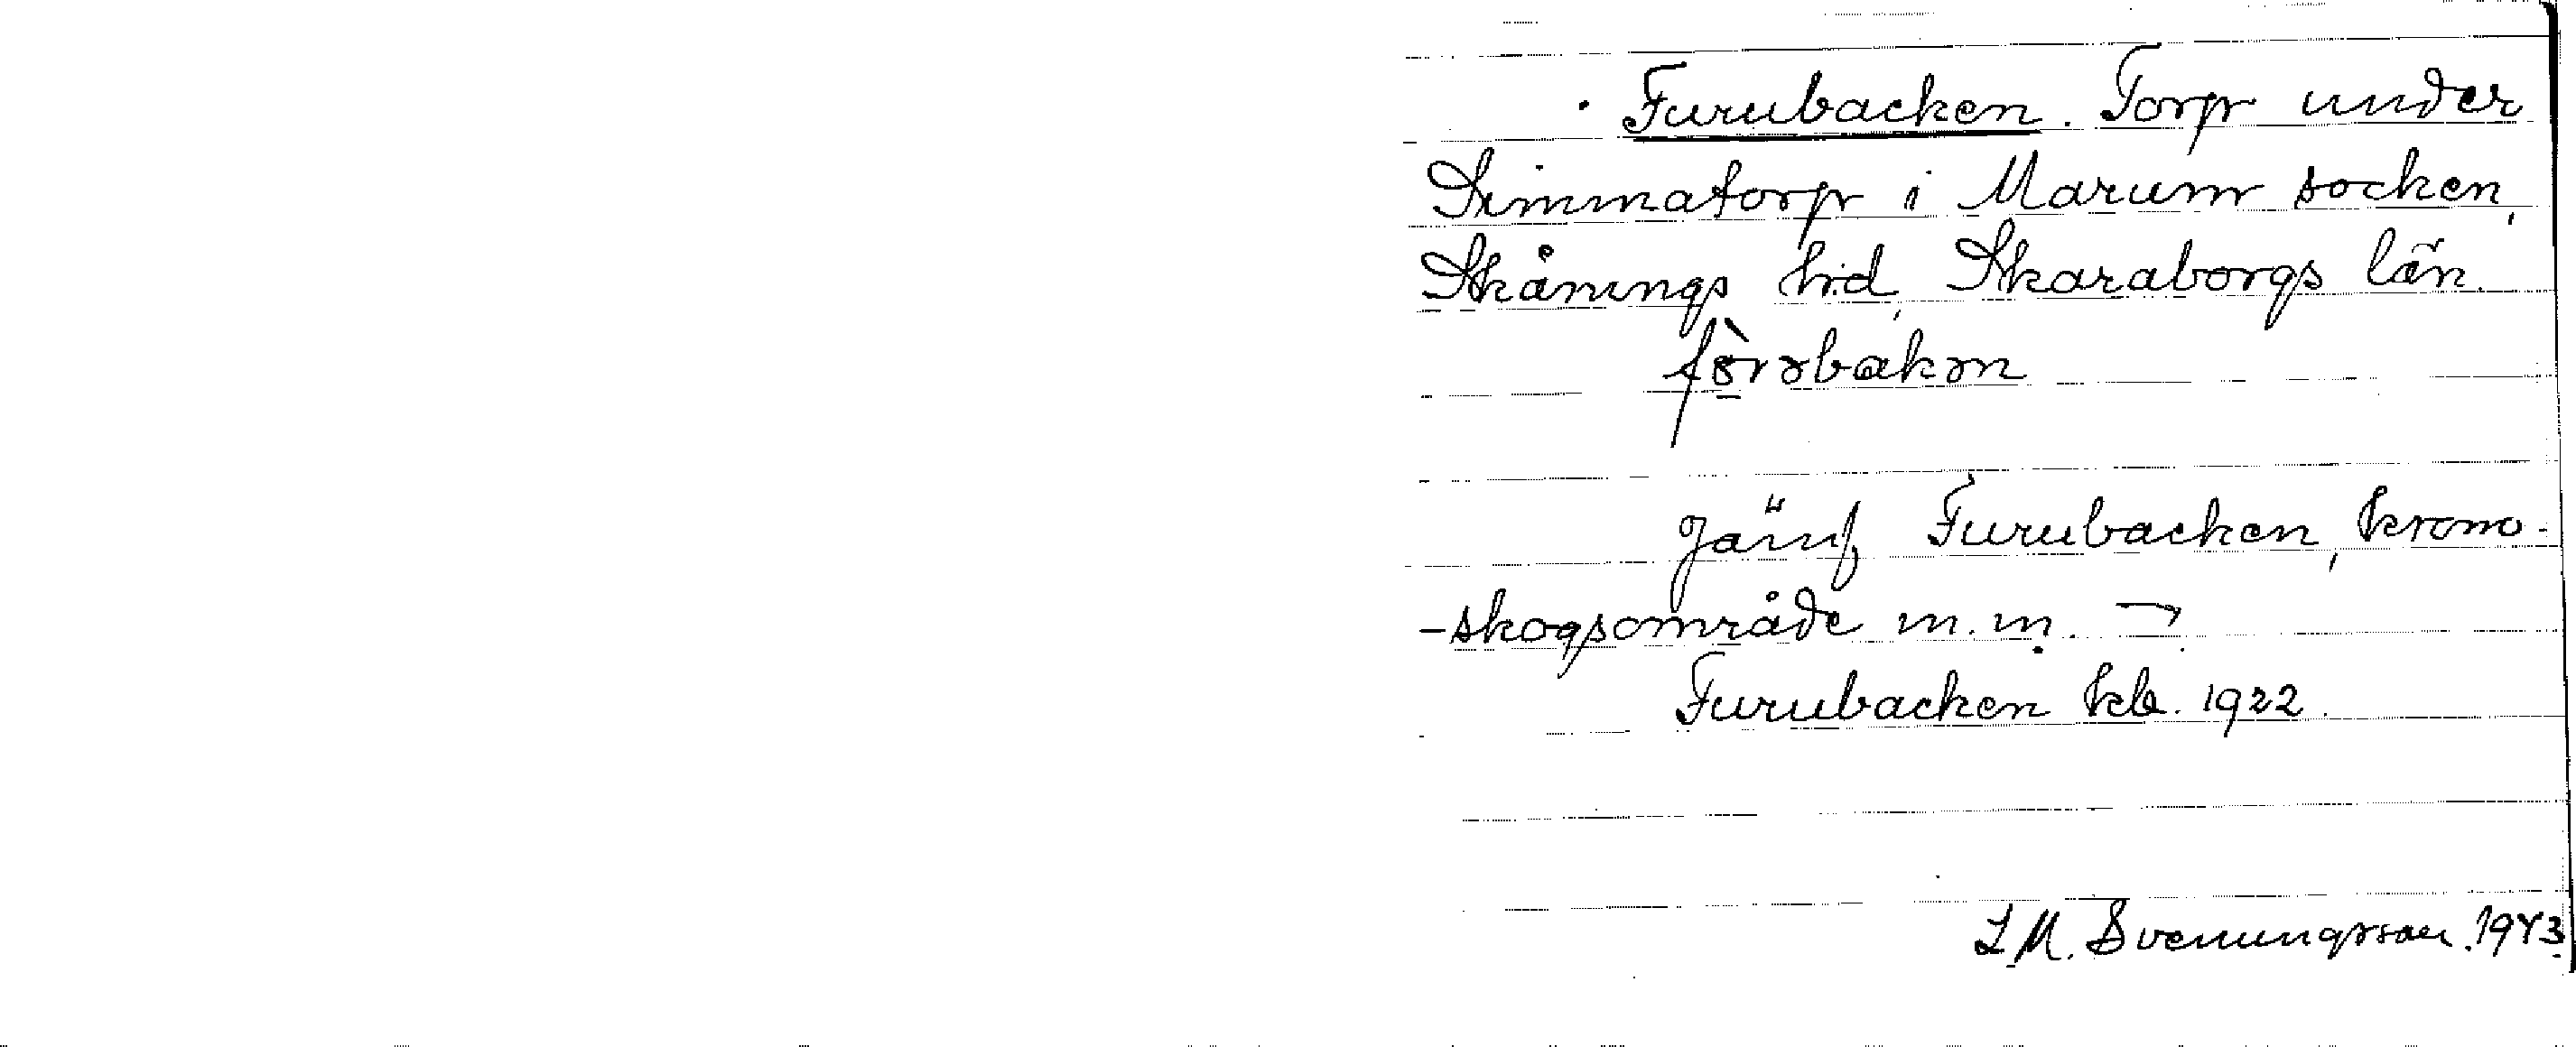 Furubacken. Torp under
Simmatorp i Marum socken,
Skånings hd, Skaraborgs län.
fȯ̀rəbakən
Jämf. Furubacken, krono-
-skogsområde m.m. ¬
Furubacken kb. 1922.
I.M. Svenungsson. 1943